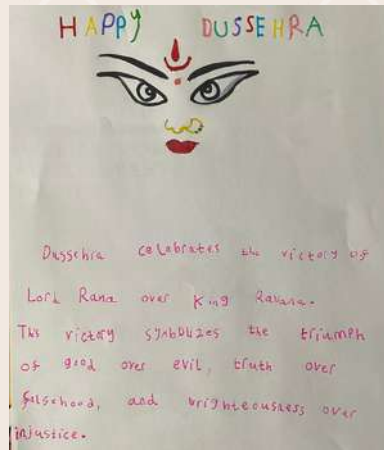 HAPPY DUSSEHRA
Dussehra celebrates the victory of
Lord Rama over King Ravana.
This victory symbolizes the triumph
of good over evil, truth over
falsehood, and urighteousness over
injustice.